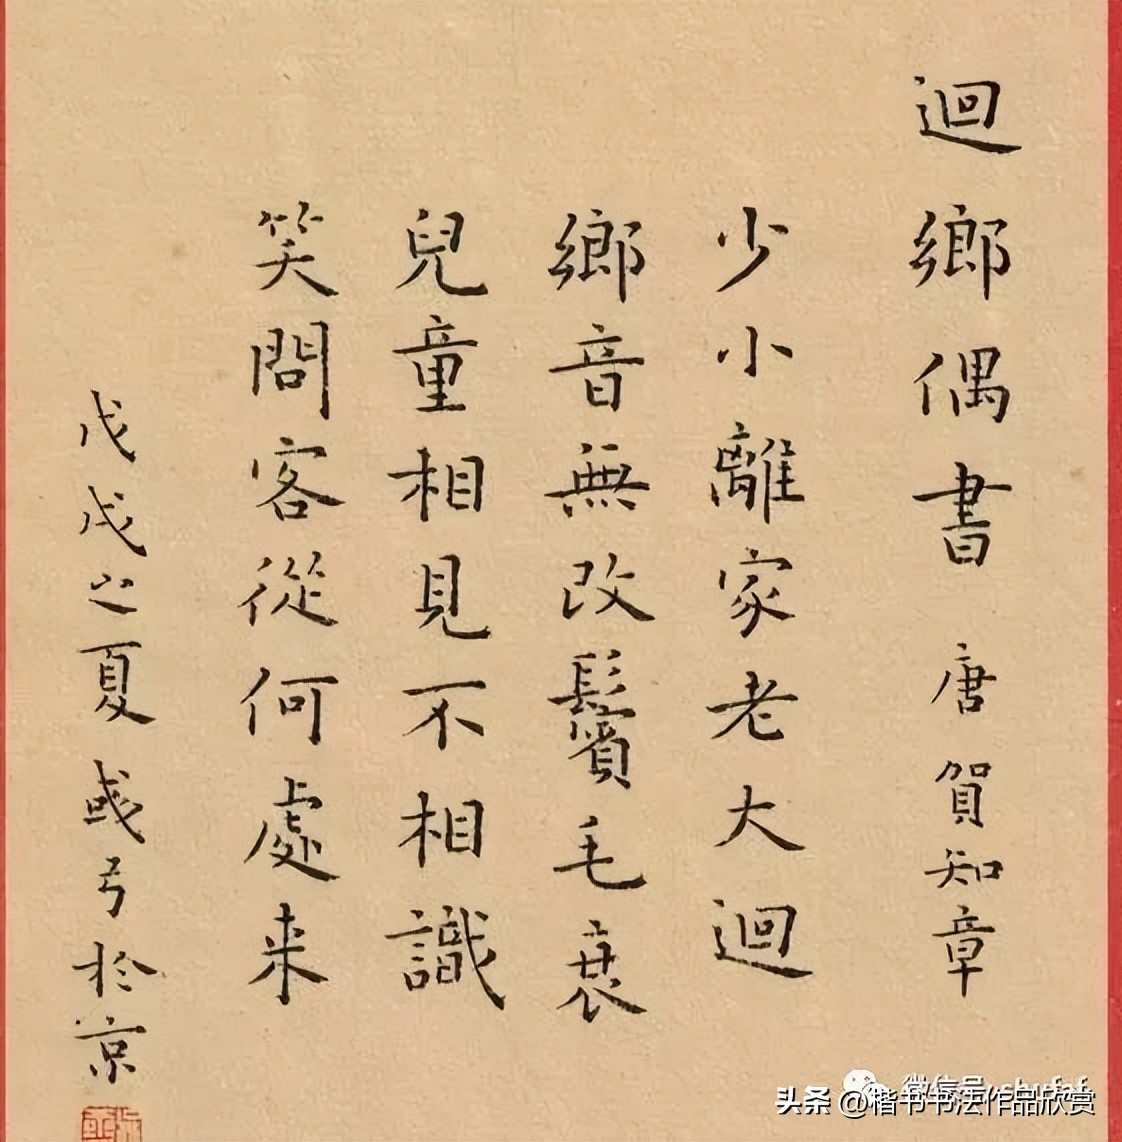 迴鄉偶書 唐 賀知章
少小離家老大迴
鄉音無改鬢毛衰
兒童相見不相識
笑問客從何處来
戊戌之夏彧弓於京
微信号: shufaf
头条 @楷书书法作品欣赏